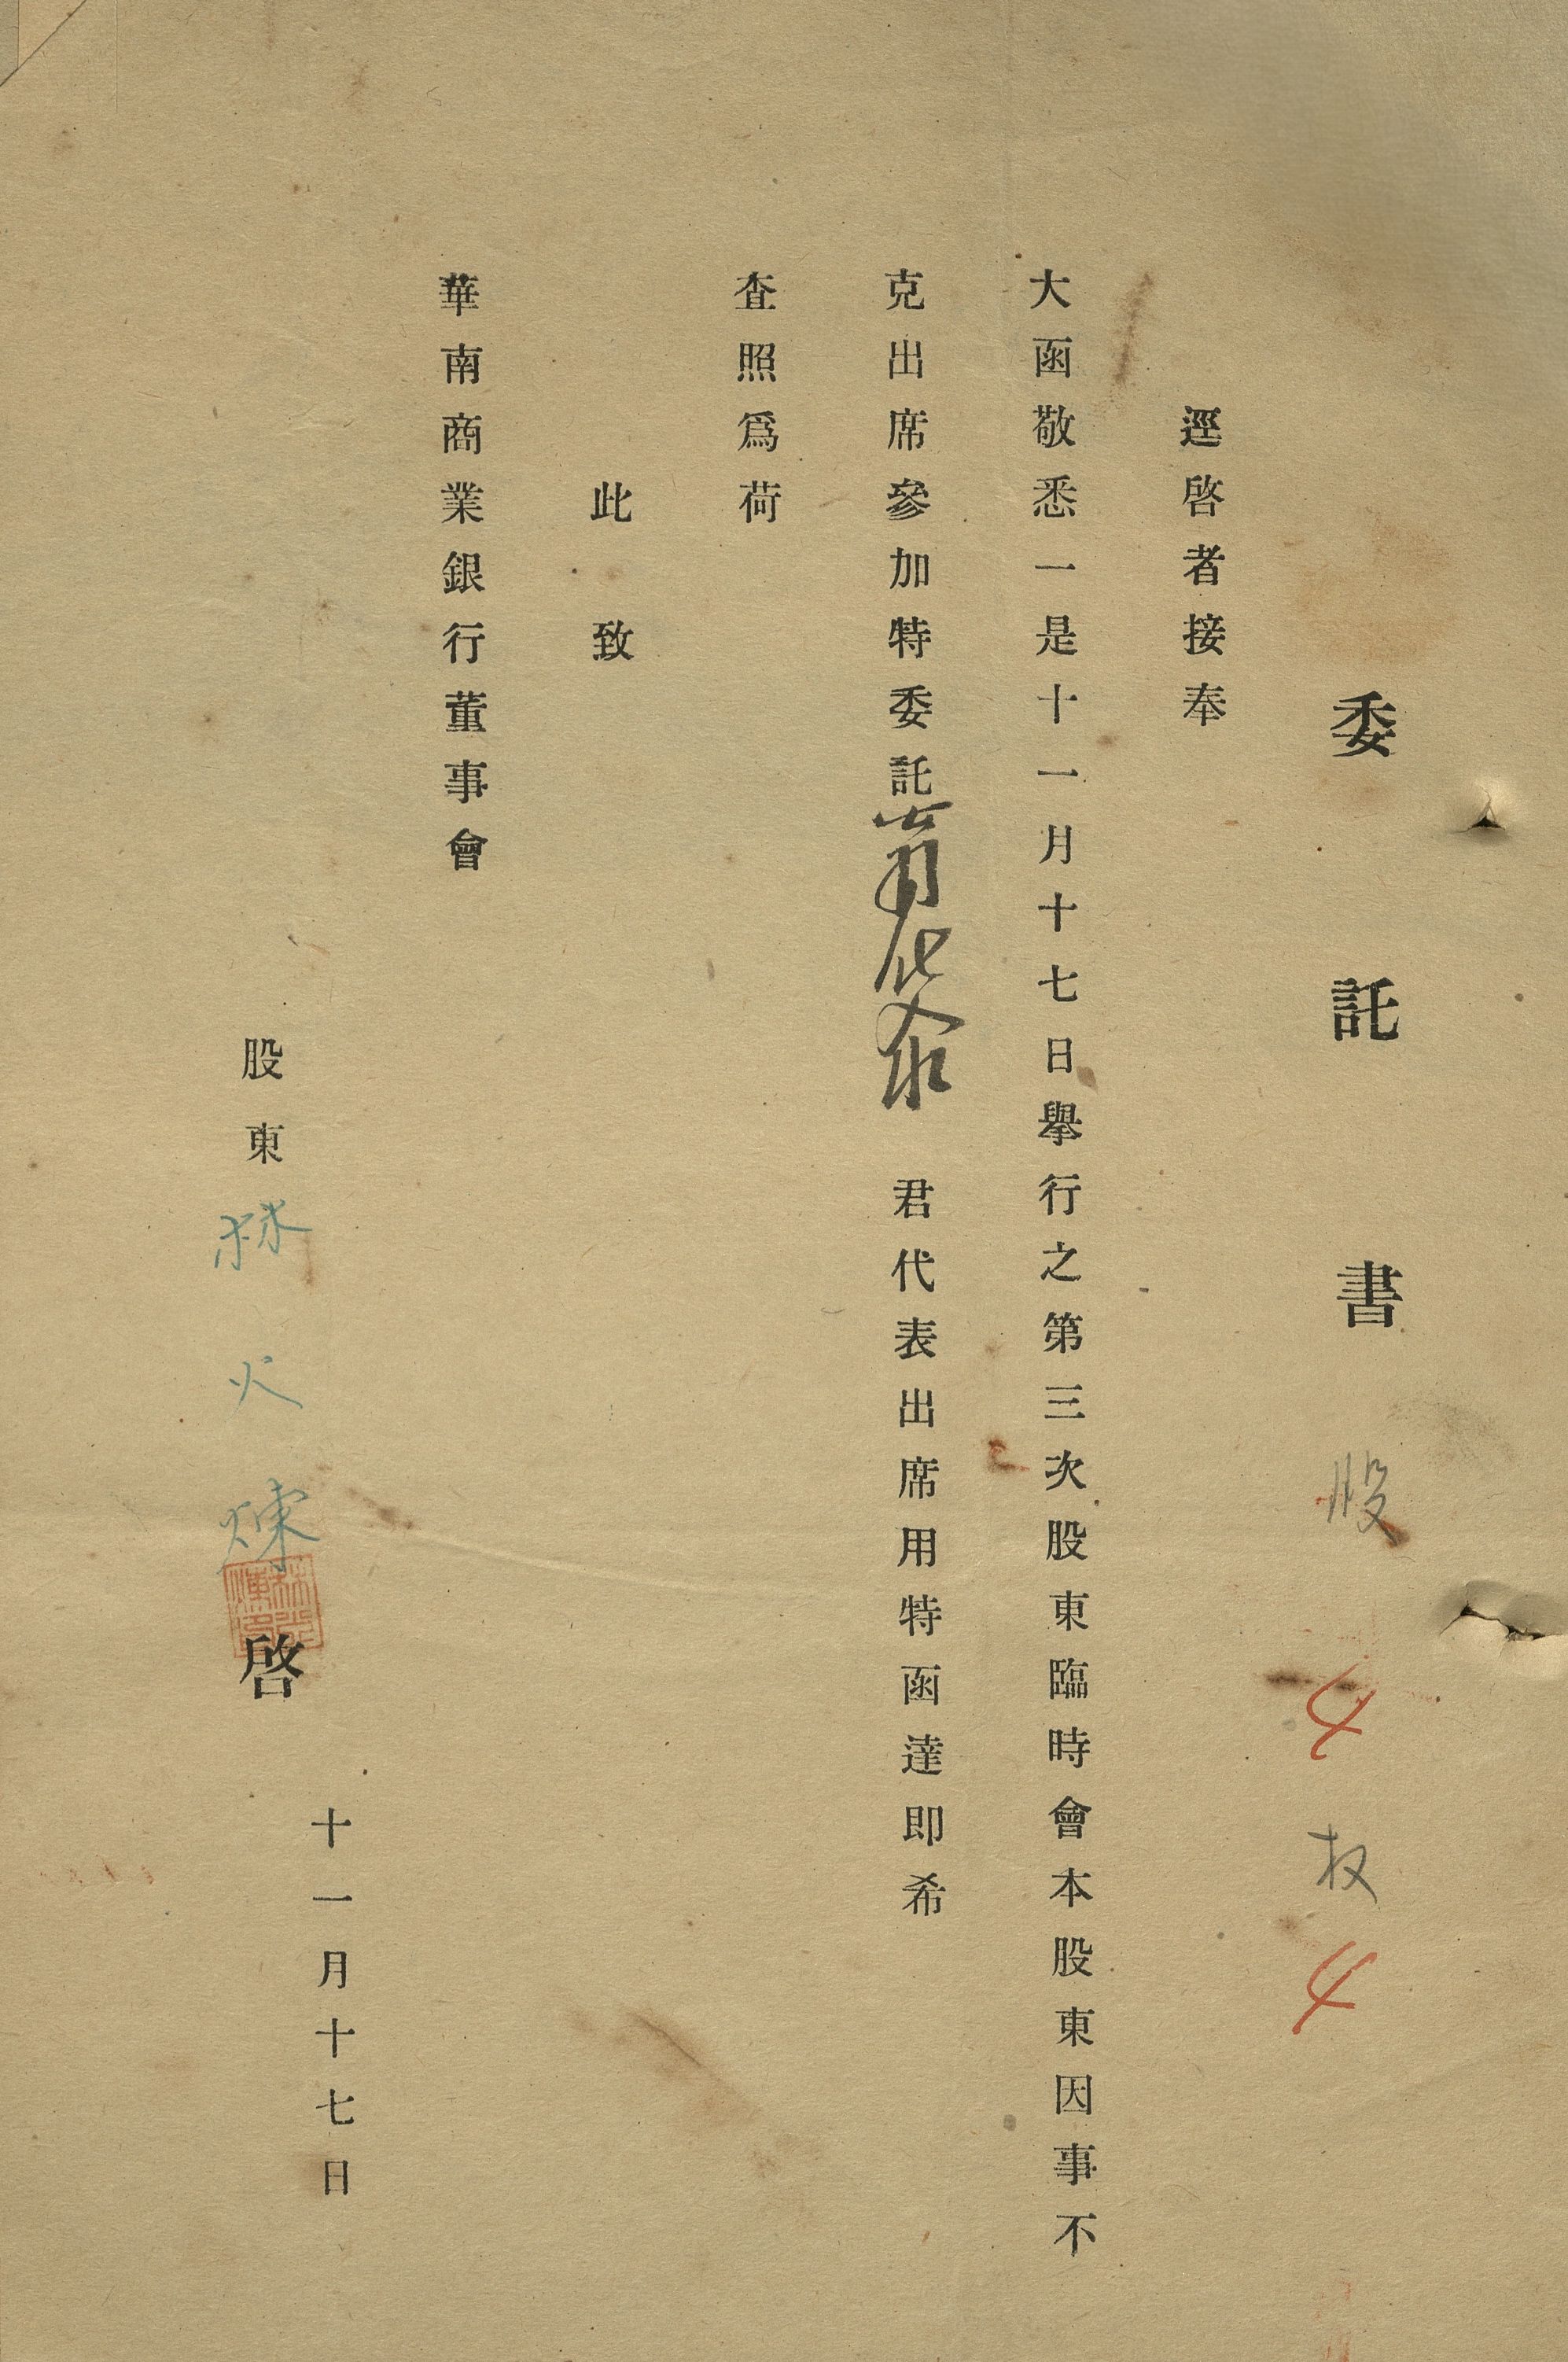 委託書
股 4 权 4
逕啓者接奉
大函敬悉一是十一月十七日舉行之第三次股東臨時會本股東因事不
克出席參加特委託 君代表出席用特函達即希
查照爲荷
此致
華南商業銀行董事會
股東 林火煉 啓
十一月十七日